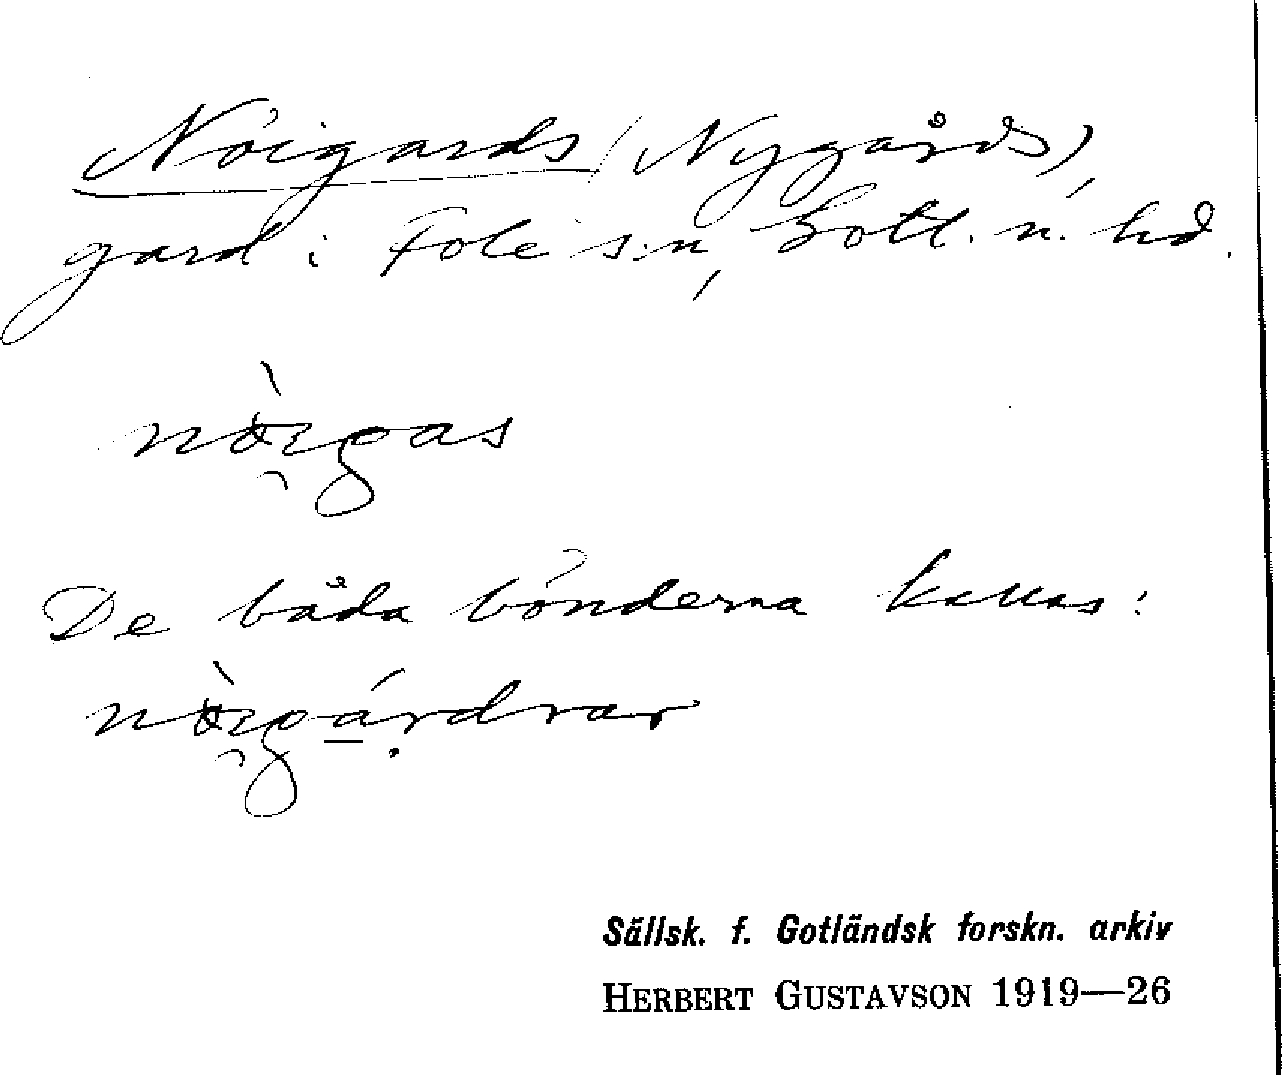 Nöigards (Nygårds),
gard i Fole s:n, Gotl. n. hd.
nòi̯gas
De båda bönderna kallas:
nòi̯gárdrar
Sällsk. f. Gotländsk forskn. arkiv
HERBERT GUSTAVSON 1919—26